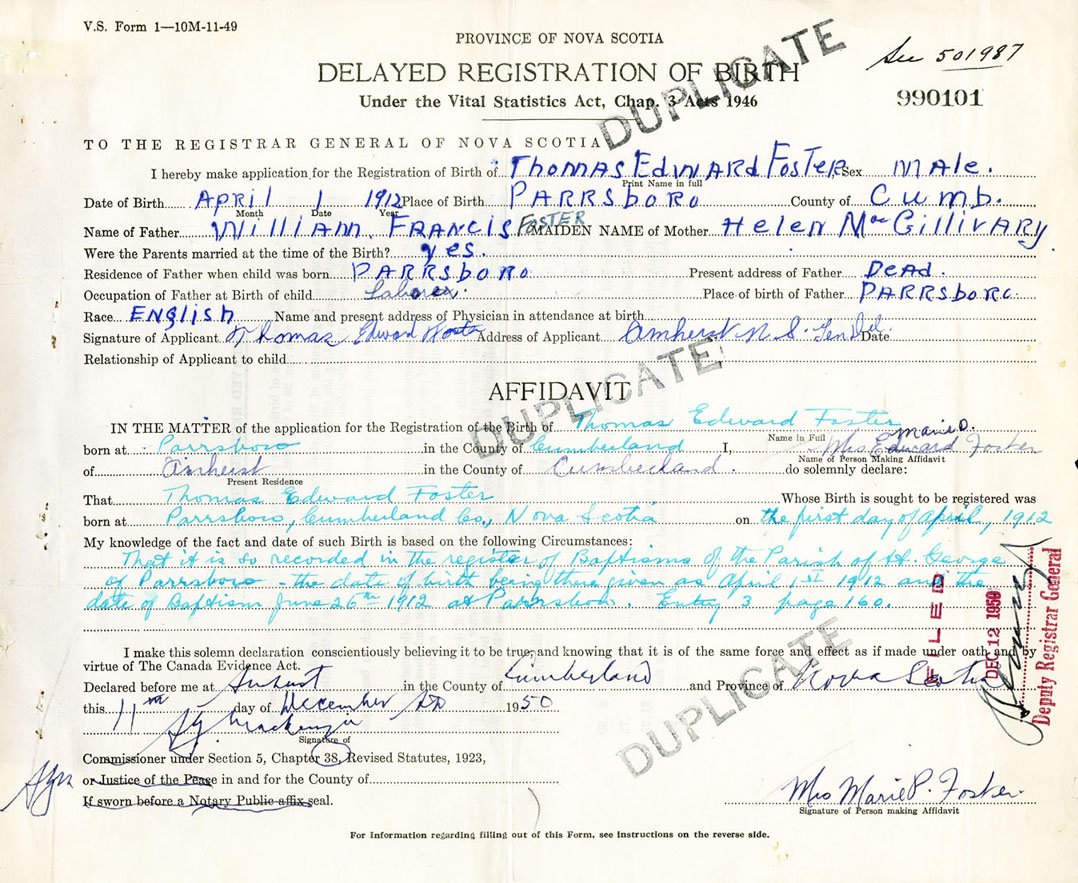 V.S. Form 1—10M-11-49
PROVINCE OF NOVA SCOTIA
See 501987
DELAYED REGISTRATION OF BIRTH
DUPLICATE
990101
Under the Vital Statistics Act, Chap. 3 Acts 1946
TO THE REGISTRAR GENERAL OF NOVA SCOTIA
I hereby make application for the Registration of Birth of Thomas Edward Foster Sex Male.
Print Name in full
Date of Birth April 1 1912 Place of Birth Parrsboro County of Cumb.
Month Date Year
Name of Father William Francis Foster MAIDEN NAME of Mother Helen MacGillivary
Were the Parents married at the time of the Birth? yes.
Residence of Father when child was born Parrsboro Present address of Father Dead.
Occupation of Father at Birth of child Laborer. Place of birth of Father Parrsboro.
Race English Name and present address of Physician in attendance at birth
Signature of Applicant Thomas Edward Foster Address of Applicant Amherst N. S. Date
Relationship of Applicant to child
AFFIDAVIT
DUPLICATE
IN THE MATTER of the application for the Registration of the Birth of Thomas Edward Foster
Name in Full Marie P.
born at Parrsboro in the County of Cumberland I, Mrs Edward Foster
Name of Person Making Affidavit
of Amherst in the County of Cumberland. do solemnly declare:
Present Residence
That Thomas Edward Foster Whose Birth is sought to be registered was
born at Parrsboro, Cumberland Co., Nova Scotia on the first day of April, 1912
My knowledge of the fact and date of such Birth is based on the following Circumstances:
That it is so recorded in the register of Baptisms of the Parish of St. George
of Parrsboro - the date of birth being there given as April 1st 1912 and the
date of Baptism June 26th 1912 at Parrsboro. Entry 3 page 160.
FILED
DEC 12 1950
Deputy Registrar General
DUPLICATE
I make this solemn declaration conscientiously believing it to be true, and knowing that it is of the same force and effect as if made under oath and by
virtue of The Canada Evidence Act.
Declared before me at Amherst in the County of Cumberland and Province of Nova Scotia
this 11th day of December AD 1950
Mackenzie
Signature of
Commissioner under Section 5, Chapter 38, Revised Statutes, 1923,
or Justice of the Peace in and for the County of
If sworn before a Notary Public affix seal.
Mrs Marie P. Foster.
Signature of Person making Affidavit
For Information regarding filling out of this Form, see instructions on the reverse side.